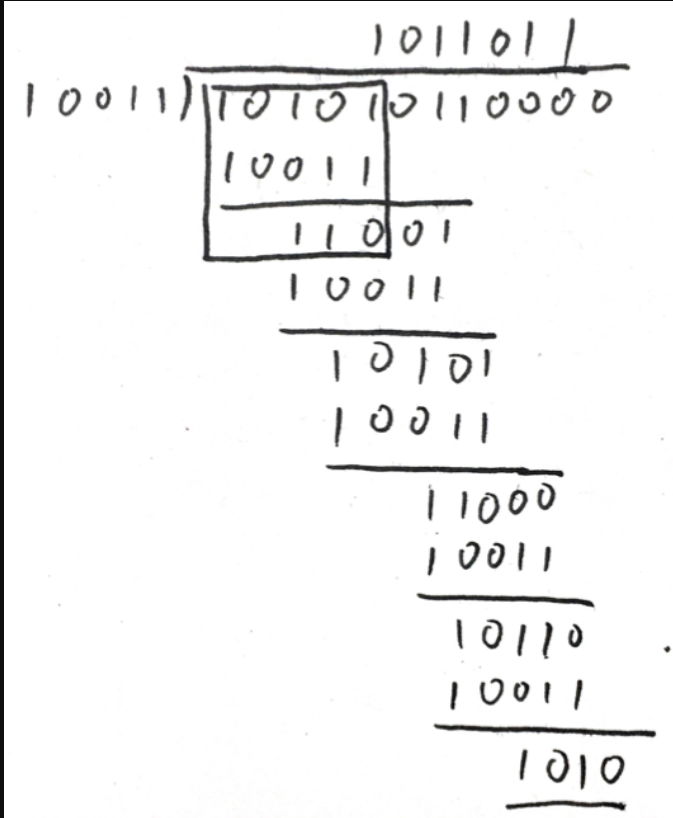 1011011
10011)101010110000
10011
11001
10011
10101
10011
11000
10011
10110
10011
1010